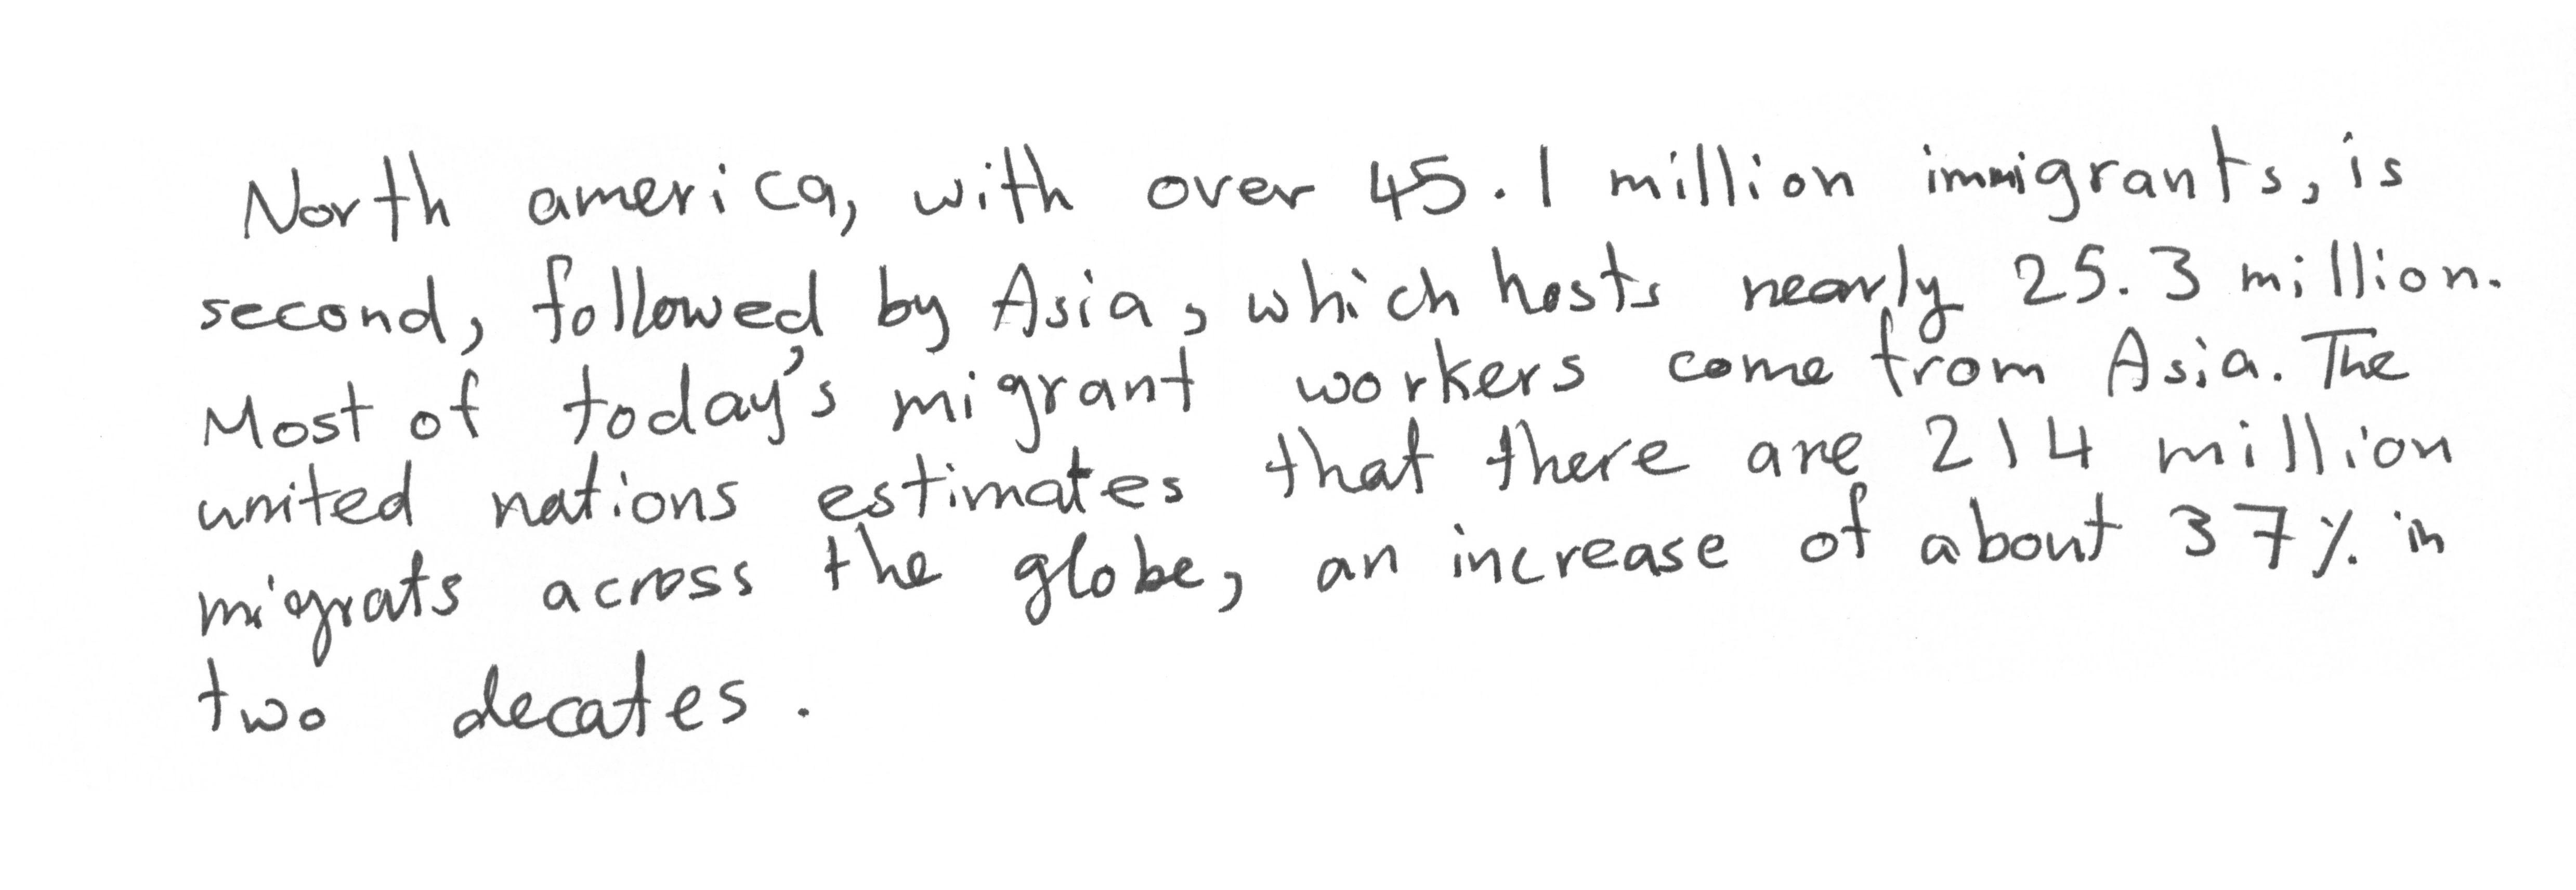 North america, with over 45.1 million immigrants, is
second, followed by Asia, which hosts nearly 25.3 million.
Most of today's migrant workers come from Asia. The
united nations estimates that there are 214 million
migrats across the globe, an increase of about 37% in
two decates.